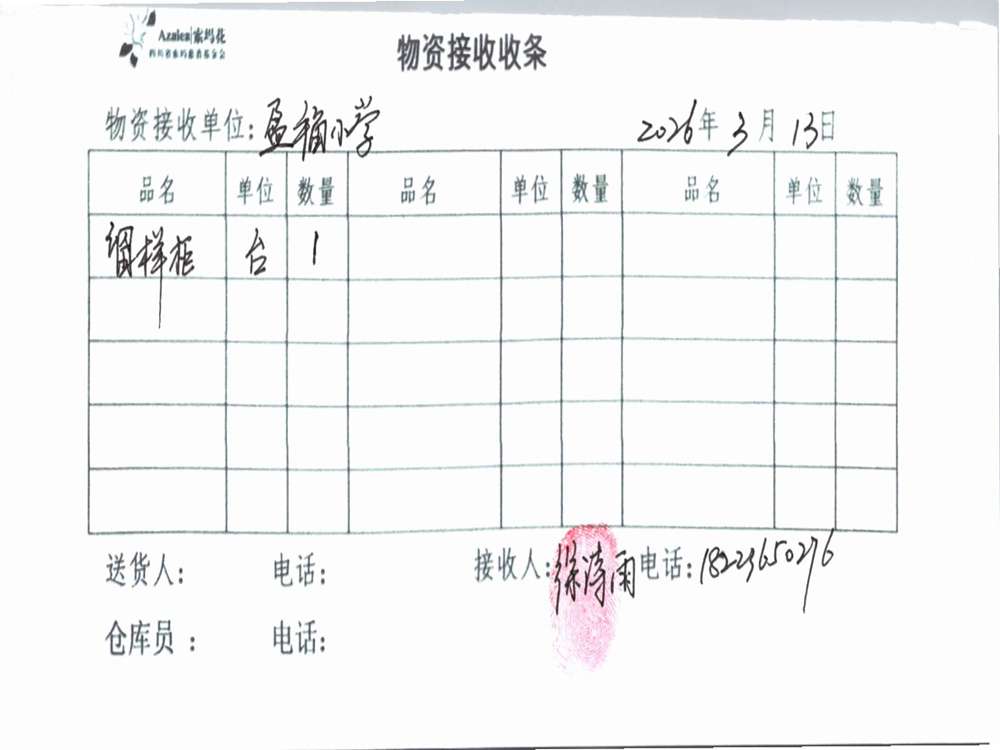 Azalea|索玛花
四川省索玛慈善基金会
物资接收收条
物资接收单位: 盈福小学 2026年 3月 13日
品名 单位 数量 品名 单位 数量 品名 单位 数量
留样柜 台 1
送货人: 电话: 接收人: 徐涛雨 电话: 18223650276
仓库员: 电话: